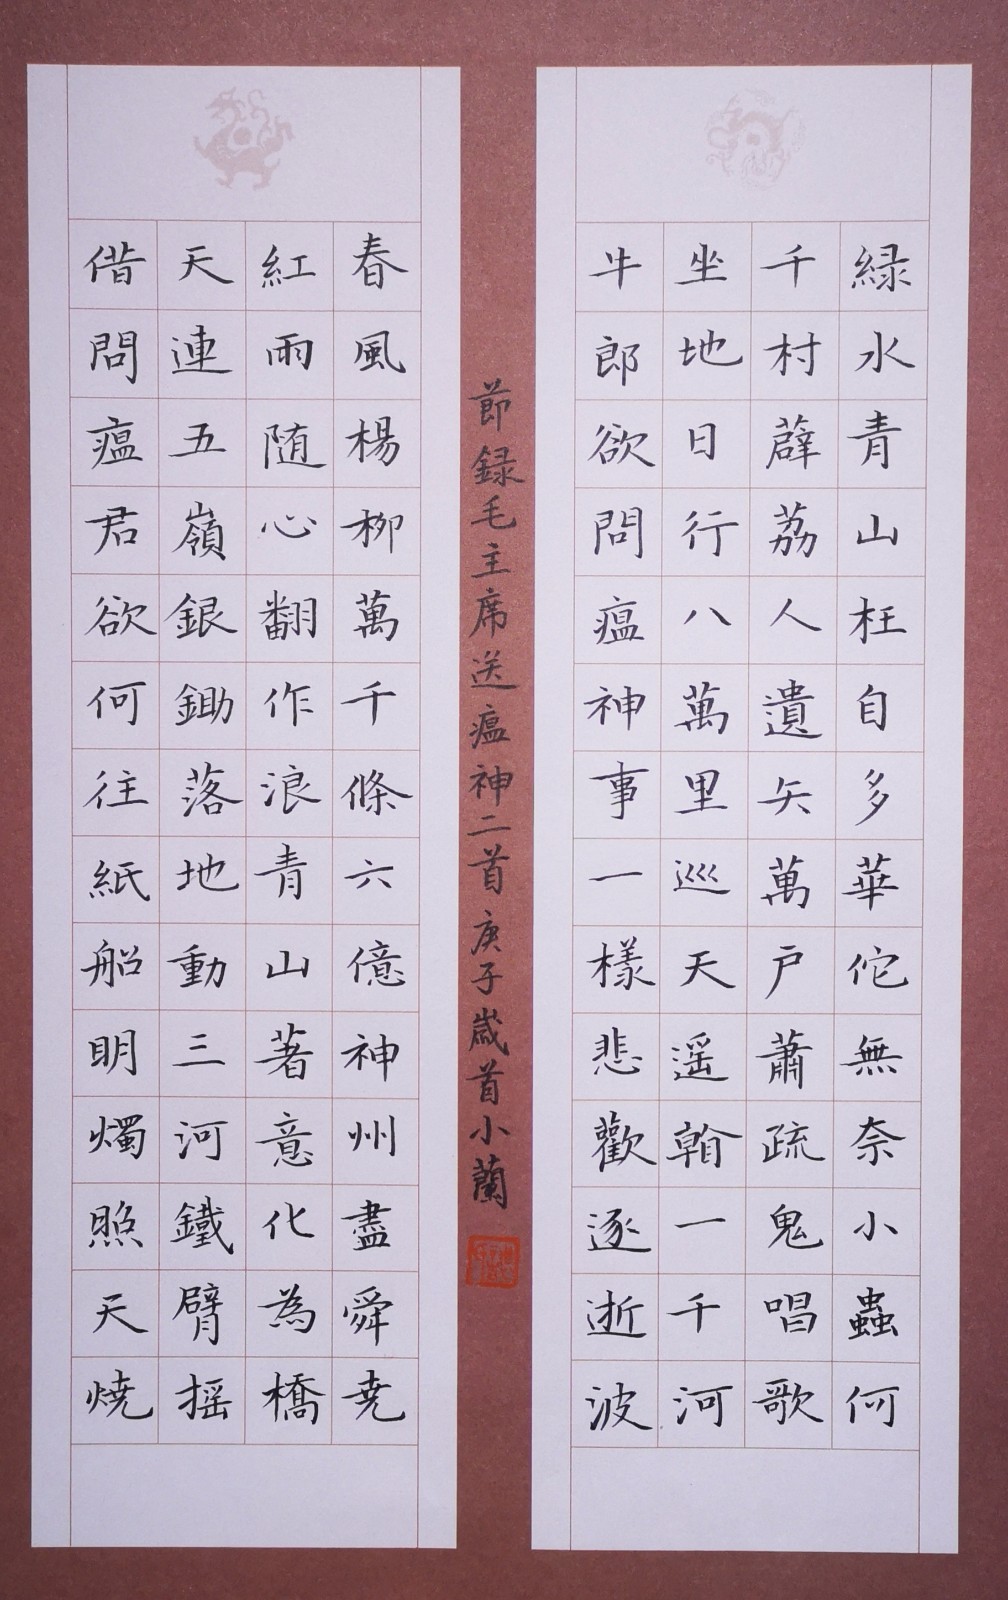 緑水青山枉自多華佗無奈小蟲何
千村薜荔人遺矢萬戶蕭疏鬼唱歌
坐地日行八萬里巡天遥翰一千河
牛郎欲問瘟神事一樣悲歡逐逝波
春風楊柳萬千條六億神州盡舜尭
紅雨随心翻作浪青山著意化為橋
天連五嶺銀鋤落地動三河鐵臂摇
借問瘟君欲何往紙船明燭照天燒
節録毛主席送瘟神二首庚子歲首小蘭